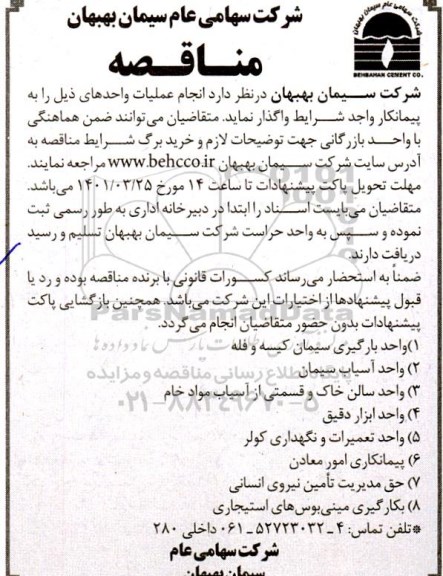 شرکت سهامی عام سیمان بهبهان
شرکت سهامی عام سیمان بهبهان
BEHBAHAN CEMENT CO.
مناقصه
شرکت سیمان بهبهان درنظر دارد انجام عملیات واحدهای ذیل را به
پیمانکار واجد شرایط واگذار نماید. متقاضیان می‌توانند ضمن هماهنگی
با واحد بازرگانی جهت توضیحات لازم و خرید برگ شرایط مناقصه به
آدرس سایت شرکت سیمان بهبهان www.behcco.ir مراجعه نمایند.
مهلت تحویل پاکت پیشنهادات تا ساعت ۱۴ مورخ ۱۴۰۱/۰۳/۲۵ می‌باشد.
متقاضیان می‌بایست اسناد را ابتدا در دبیرخانه اداری به طور رسمی ثبت
نموده و سپس به واحد حراست شرکت سیمان بهبهان تسلیم و رسید
دریافت دارند.
ضمناً به استحضار می‌رساند کسورات قانونی با برنده مناقصه بوده و رد یا
قبول پیشنهادها از اختیارات این شرکت می‌باشد. همچنین بازگشایی پاکت
پیشنهادات بدون حضور متقاضیان انجام می‌گردد.
۱)واحد بارگیری سیمان کیسه و فله
۲) واحد آسیاب سیمان
۳) واحد سالن خاک و قسمتی از آسیاب مواد خام
۴) واحد ابزار دقیق
۵) واحد تعمیرات و نگهداری کولر
۶) پیمانکاری امور معادن
۷) حق مدیریت تأمین نیروی انسانی
۸) بکارگیری مینی‌بوس‌های استیجاری
*تلفن تماس: ۴ ـ ۵۲۷۲۳۰۳۲ ـ ۰۶۱ داخلی ۲۸۰
شرکت سهامی عام
سیمان بهبهان
ParsNamadData
پایگاه اطلاع رسانی مناقصه و مزایده
۰۲۱-۸۸۳۴۹۶۷۰-۵